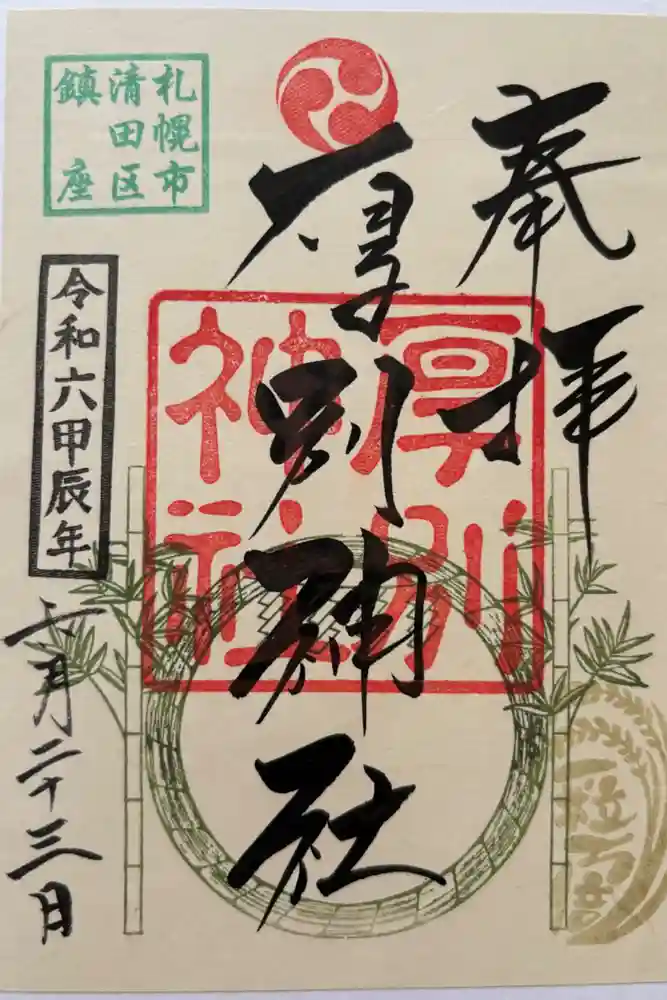 奉拝
厚別神社
厚別
神社
札幌市
清田区
鎮座
令和六甲辰年
六月二十三日
一粒万倍